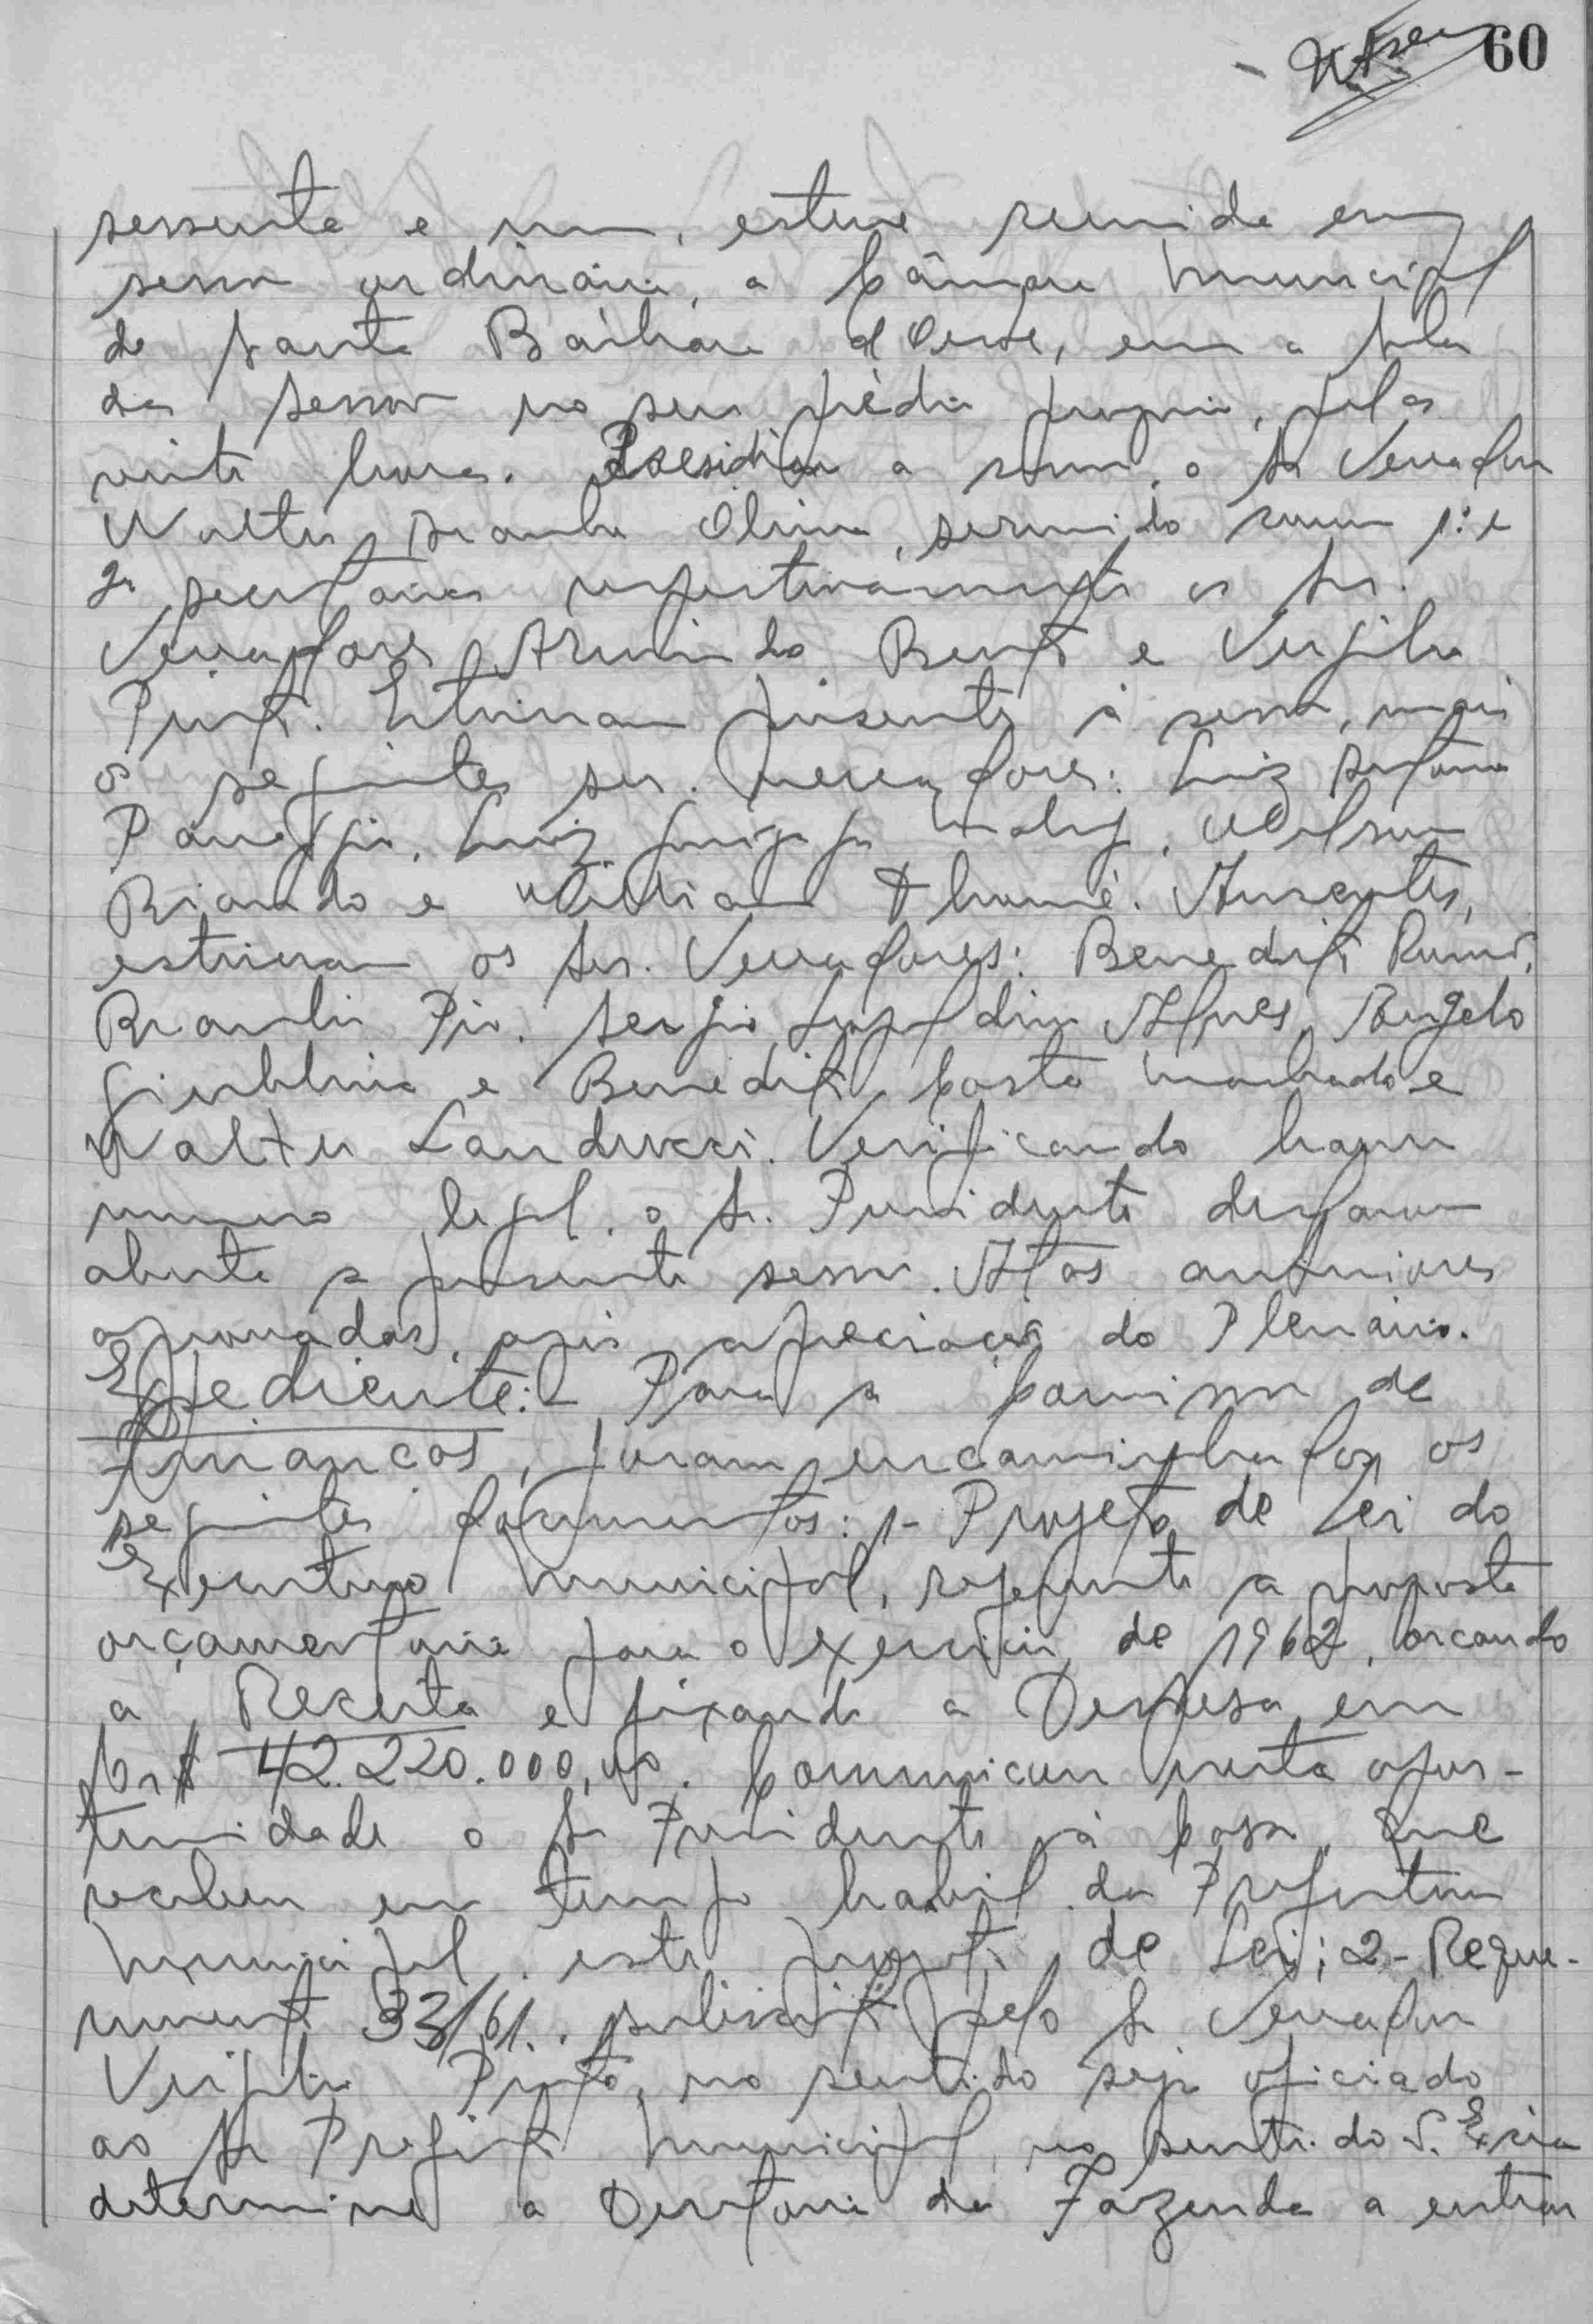 60
sessenta e um, esteve reunida em
sessão ordinária, a Câmara Municipal
de Santa Bárbara d'Oeste, em a sala
das sessões no seu prédio proprio, pelas
vinte horas. Presidiu a sessão, o Sr Vereador
Walter, servindo como 1º e
2º secretarios respectivamente os Srs.
Vereadores Armindo Bento e Virgilio
Pinto. Estiveram presentes à sessão, mais
os seguintes srs. vereadores: Luiz Antonio
Panaggio, Luiz, Wilson
Riando e William Thomé. Ausentes,
estiveram os Srs. Vereadores: Benedito
Pio. Sergio Leopoldino Alves, Angelo
Giubbina e Benedito Costa Machado e
Walter Landucci. Verificando haver
numero legal, o Sr. Presidente declarou
aberta a presente sessão. Atas anteriores
aprovadas, após apreciação do Plenário.
Expediente:- Para a Comissão de
Finanças, foram encaminhados os
seguintes documentos: 1- Projeto de Lei do
Executivo Municipal, referente a proposta
orçamentaria para o exercicio de 1962, orçando
a Receita e fixando a Despesa em
Cr$ 42.220.000,00. Comunicou nesta opor-
tunidade o Sr Presidente à Casa, que
recebeu em tempo habil da Prefeitura
Municipal, este projeto de Lei; 2- Reque-
rimento 33/61, subscrito pelo Sr Vereador
Virgilio Pinto, no sentido seja oficiado
ao Sr Prefeito Municipal, no sentido S. Excia
determine a Diretoria da Fazenda a entrar